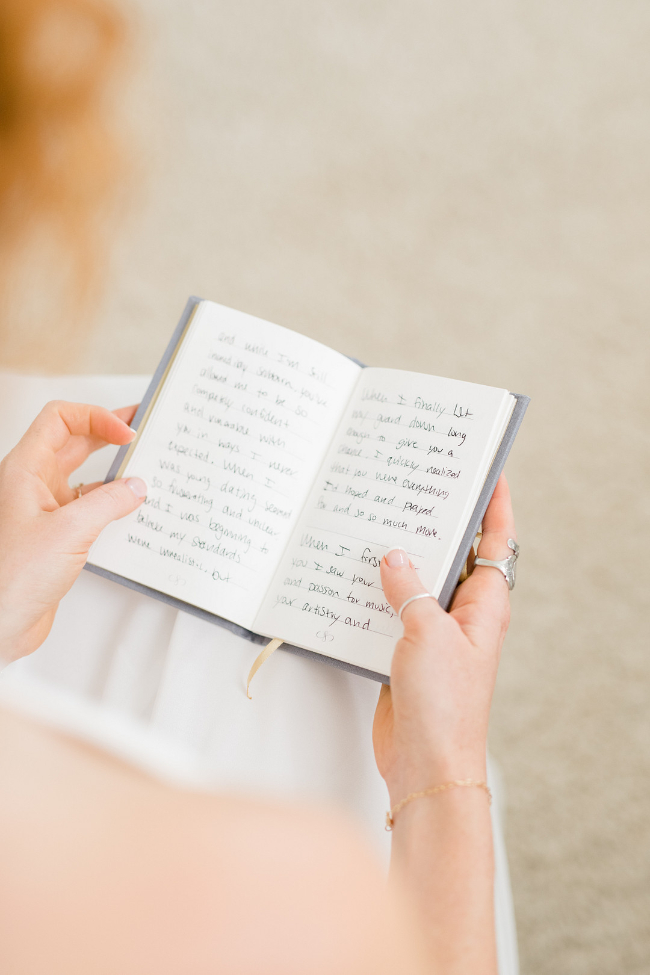 and while I'm still
you've
allowed me to be so
completely confident
and vulnerable with
you in ways I never
expected. When I
was young dating seemed
so frustrating and unclear
and I was beginning to
believe my standards
were unrealistic, but
When I finally let
my guard down long
enough to give you a
chance, I quickly realized
that you were everything
I'd hoped and prayed
for and so so much more.
When I first
you I saw your
and passion for music,
your artistry and